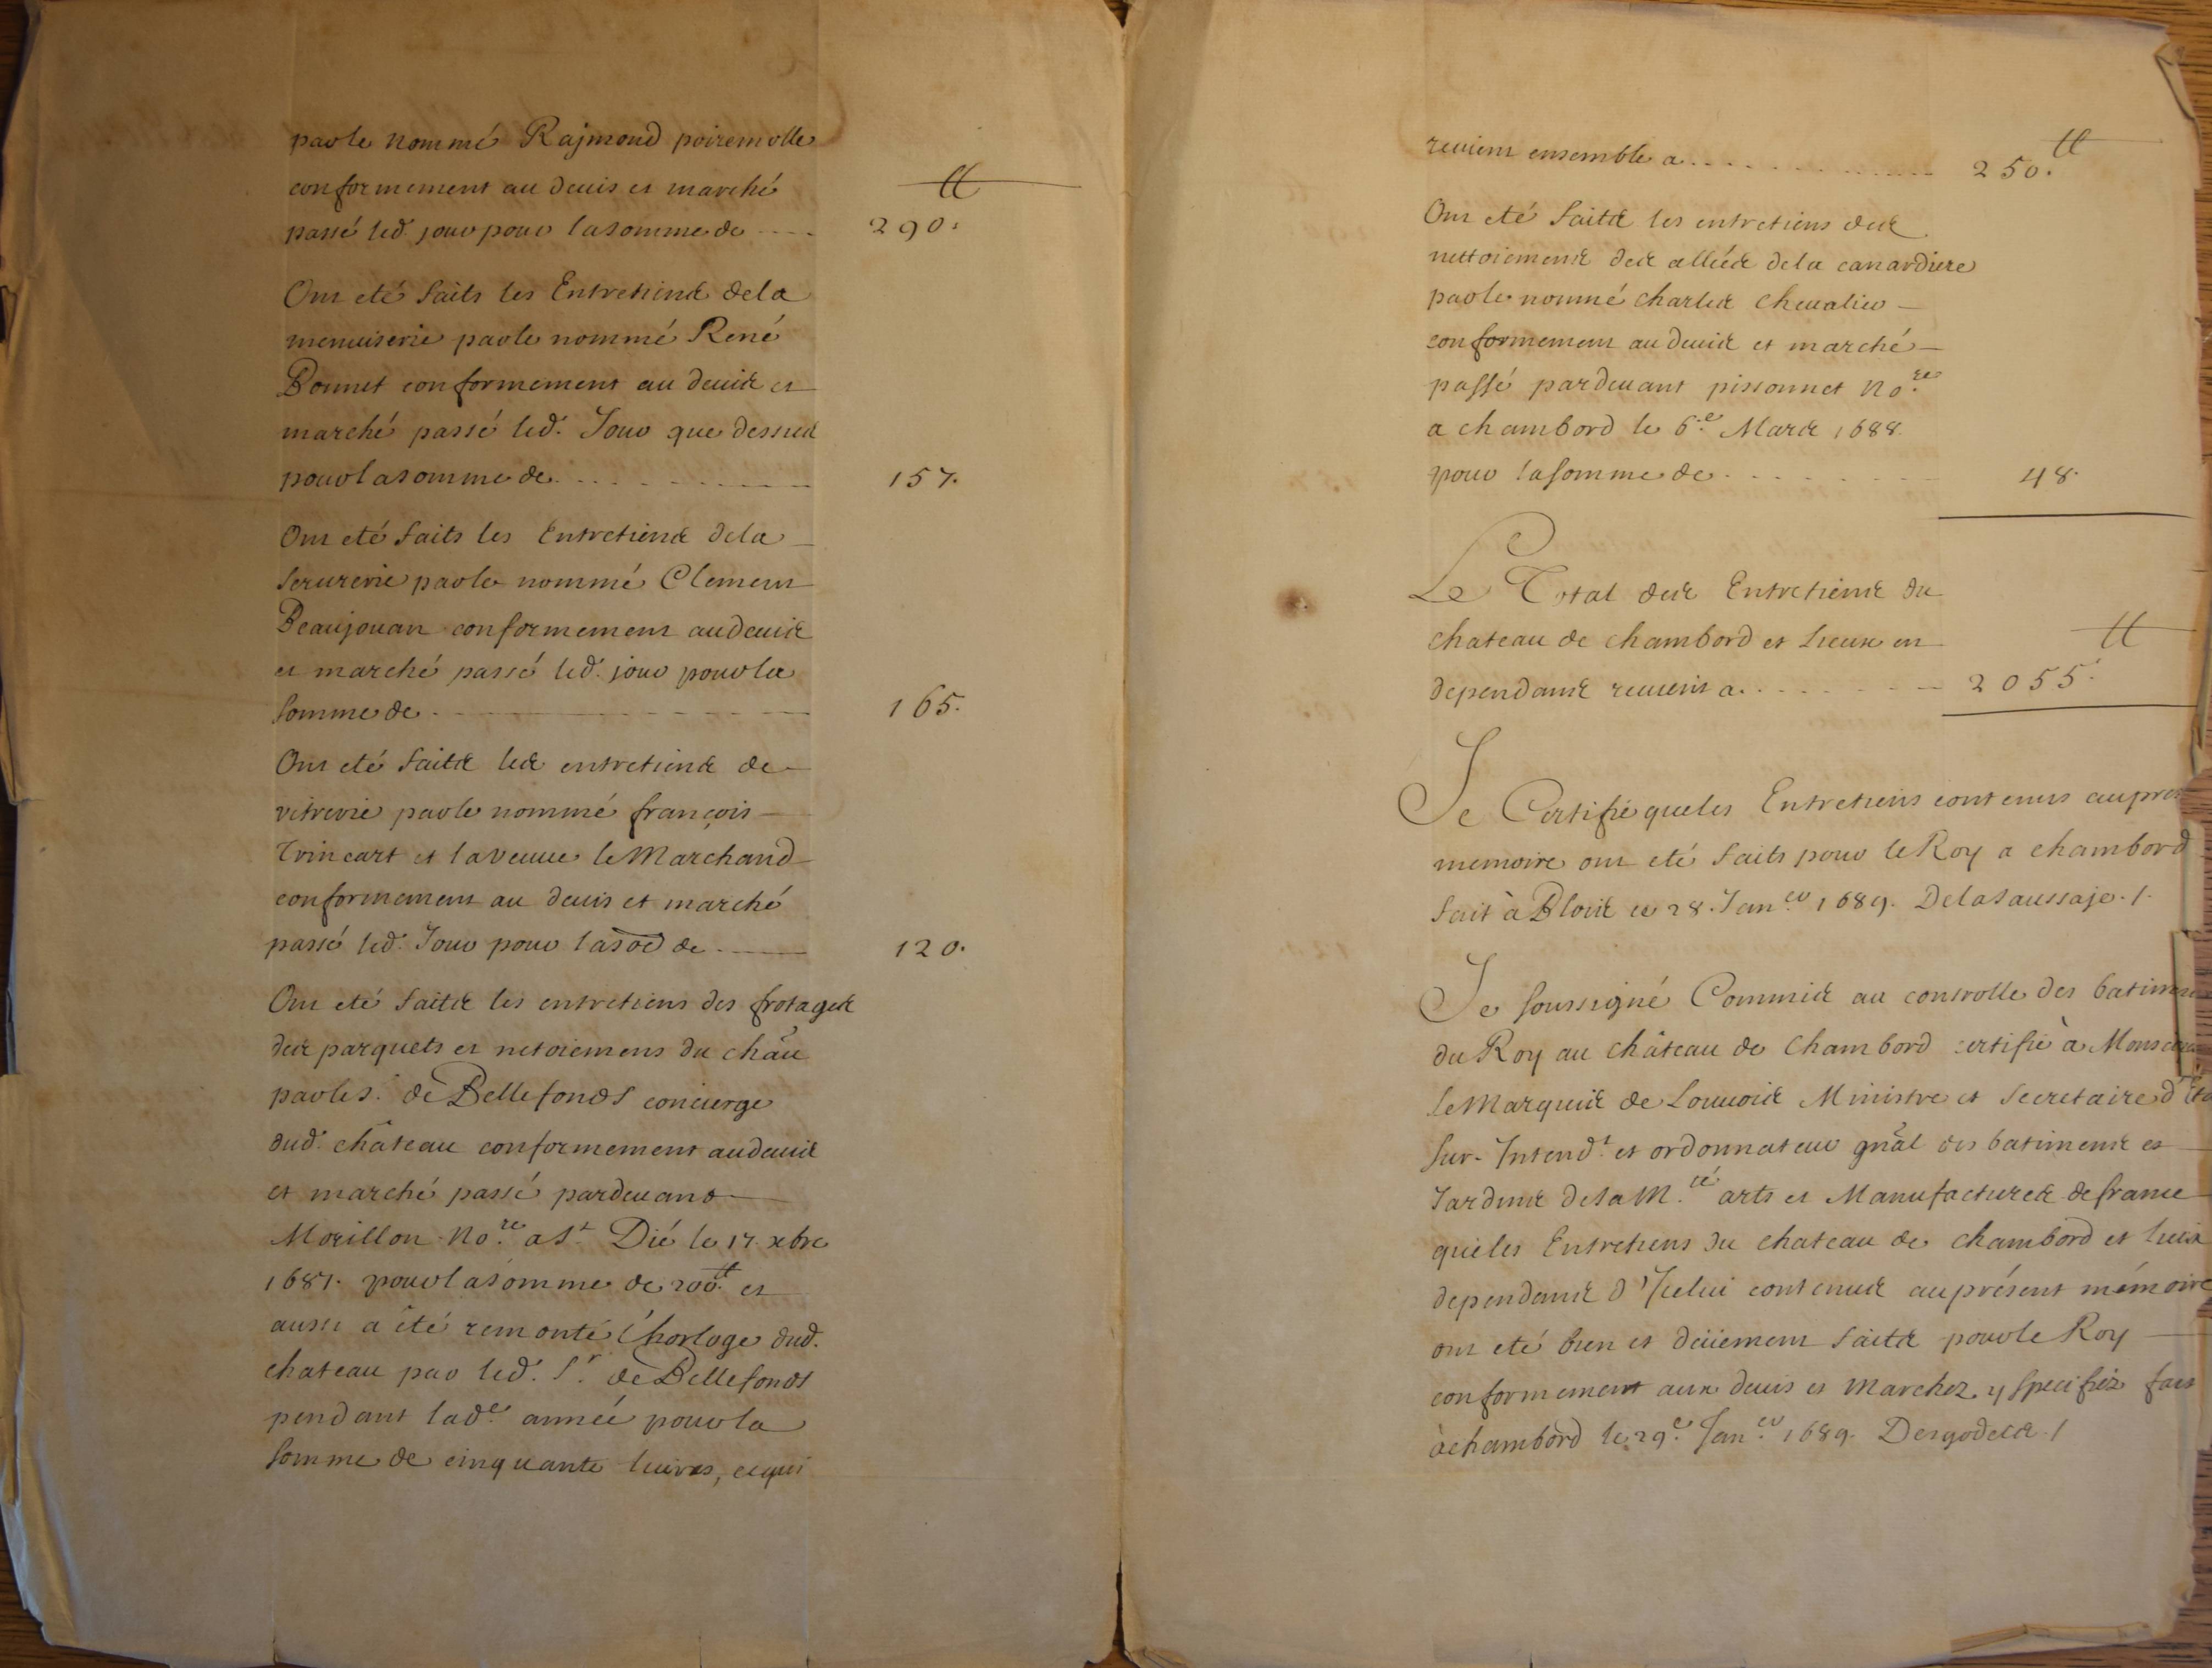 par le nommé Rajmond poiremolle
conformement au devis et marché
passé led. jour pour la somme de ---- 290. ₶
Ont eté faits les Entretiens de la
menuiserie par le nommé René
Bonnet conformement au devis et
marché passé led. Jour que dessus
pour la somme de .......... 157.
Ont eté faits les Entretiens de la
serurerie par le nommé Clement
Beaujouan conformement au devis
et marché passé led. jour pour la
somme de .......... 165.
Ont eté faits les entretiens de
vitrerie par le nommé françois
Trincart et la veuve le Marchand
conformement au devis et marché
passé led. Jour pour la soe de .---- 120.
Ont eté faits les entretiens des frotages
des parquets et netoiemens du chãu
par le s. de Bellefonds concierge
dud. château conformement au devis
et marché passé pardevant
Morillon No.re a St Dié le 17 xbre
1687. pour la somme de 200.₶ et
aussi a été remonté l'horloge dud.
chateau par led. Sr. de Bellefonds
pendant lad.e année pour la
somme de cinquante livres, ce qui
revient ensemble a .......... 250. ₶
Ont eté faits les entretiens des
nettoiements des allées de la canardiere
par le nommé charles chevalier
conformement au devis et marché
passé pardevant pissonnet No.re
a chambord le 6.e Mars 1688.
pour la somme de .......... 48.
Le Total des Entretiens du
chateau de chambord et Lieux en
dependans revient a .......... 2055. ₶
Je Certifie que les Entretiens contenus au pres
memoire ont eté faits pour le Roy a chambord
fait à Blois ce 28. Jan.er 1689. De la Saussaje ./.
Je soussigné Commis au controlle des batimen
du Roy au château de Chambord certifie à Monseig
le Marquis de Louvois Ministre et Secretaire d'Eta
Sur-Intend.t et ordonnateur gnãl des batimens et
Jardins de sa M.té arts et Manufactures de france
que les Entretiens du chateau de chambord et lieux
dependans d'Icelui contenus au présent mémoire
ont eté bien et deüement faits pour le Roy
conformement aux devis et marchez y specifiez fait
à chambord le 29.e Jan.er 1689. Desgodets ./